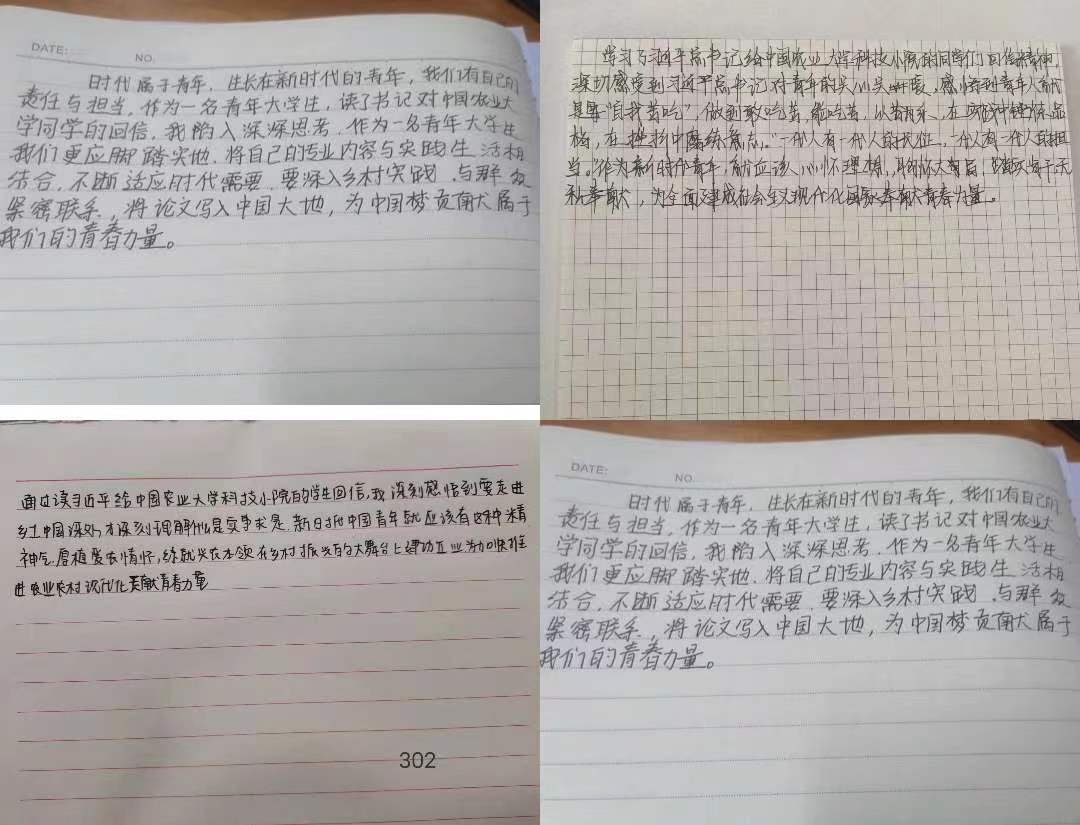 DATE:
NO.
时代属于青年，生长在新时代的青年，我们有自己的
责任与担当，作为一名青年大学生，读了书记对中国农业大
学同学的回信，我陷入深深思考，作为一名青年大学生
我们更应脚踏实地，将自己的专业内容与实践生活相
结合，不断适应时代需要，要深入乡村实践，与群众
紧密联系，将论文写入中国大地，为中国梦贡献属于
我们的青春力量。
学习了习近平总书记给中国农业大学科技小院的同学们回信精神，
深切感受到习近平总书记对青年的关心关爱，感悟到青年人就
是要“自找苦吃”，做到敢吃苦，能吃苦，以苦为乐，在中锤炼品
格，在挫折中磨练意志。一代人有一代人的长征，一代人有一代人的担
当。作为新时代青年，就应该心怀理想，胸怀大局，踏实肯干，无
私奉献，为全面建成社会主义现代化国家奉献青春力量。
通过读习近平给中国农业大学科技小院的学生回信，我深刻感悟到要走进
乡土中国深处，才深刻理解什么是实事求是，新时代中国青年就应该有这种精
神气，厚植爱农情怀，练就兴农本领，在乡村振兴的大舞台上建功立业，为加快推
进农业农村现代化贡献青春力量
302
DATE:
NO.
时代属于青年，生长在新时代的青年，我们有自己的
责任与担当，作为一名青年大学生，读了书记对中国农业大
学同学的回信，我陷入深深思考，作为一名青年大学生
我们更应脚踏实地，将自己的专业内容与实践生活相
结合，不断适应时代需要，要深入乡村实践，与群众
紧密联系，将论文写入中国大地，为中国梦贡献属于
我们的青春力量。